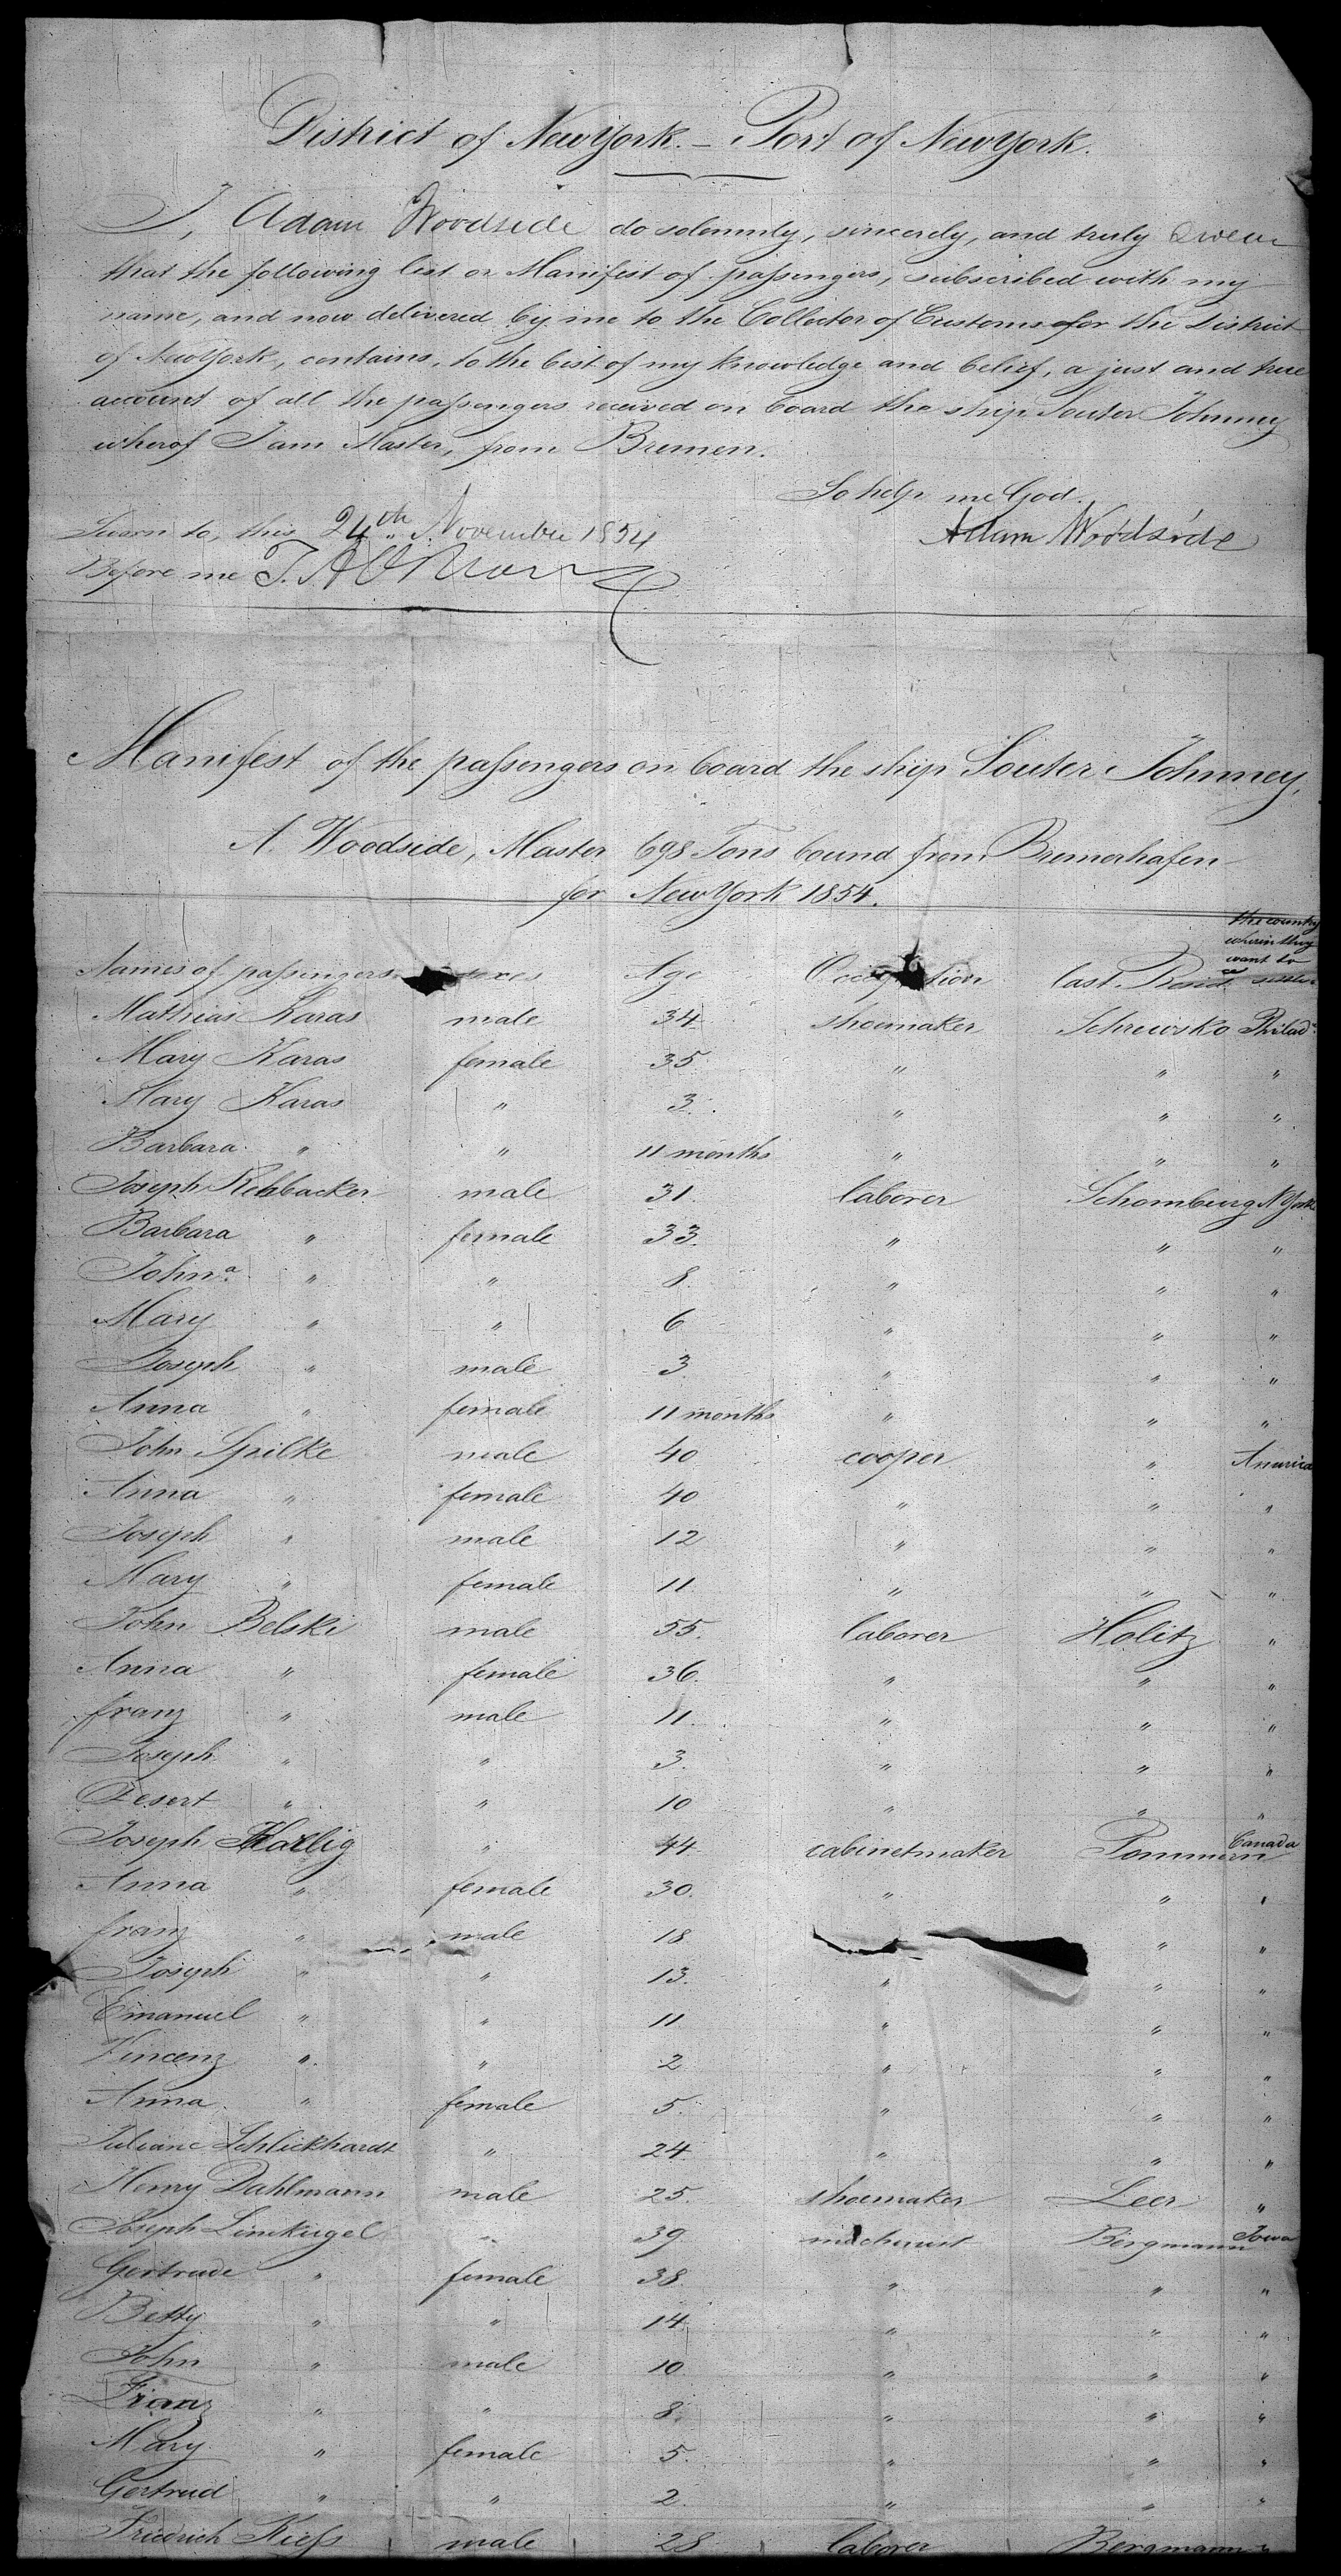 District of NewYork. – Port of NewYork.
I, Adam Woodside do solemnly, sincerely, and truly swear
that the following list or Manifest of passengers, subscribed with my
name, and now delivered by me to the Collector of Customs for the District
of NewYork, contains, to the best of my knowledge and belief, a just and true
account of all the passengers received on board the ship Souter Johnney
wherof I am Master, from Bremen.
So help me God.
Sworn to, this 24th November 1854
Adam Woodside
Before me
Manifest of the passengers on board the ship Souter Johnney,
A. Woodside, Master 698 Tons bound from Bremerhafen
for NewYork 1854.
Names of passengers. sexes Age Occupation last Resid.ce the country wherin they want to settle.
Mathias Karas male 34 shoemaker Schrewsko Philad.a
Mary Karas female 35 " " "
Mary Karas " 3. " " "
Barbara " " 11 months " " "
Joseph Rehbacker male 31. laborer Schomburg N York
Barbara " female 33. " " "
John.a " " 8. " " "
Mary " " 6 " " "
Joseph " male 3 " " "
Anna " female 11 months " " "
John Spilke male 40 cooper " America
Anna " female 40 " " "
Joseph " male 12 " " "
Mary " female 11. " " "
John Belski male 55. laborer Holitz "
Anna " female 36. " " "
franz " male 11. " " "
Joseph " " 3. " " "
Desert " " 10 " " "
Joseph Karlig " 44 cabinetmaker Pommern Canada
Anna " female 30. " " "
franz " male 18 " "
Joseph " " 13. " " "
Emanuel " " 11 " " "
Vincenz " " 2 " " "
Anna " female 5. " " "
Juliane Schlickhardt " 24. " " "
Henry Dahlmann male 25. shoemaker Leer "
Joseph Limkugel " 39 machinist Bergmann Iowa
Gertrude " female 38 " " "
Betty " " 14. " " "
John " male 10 " " "
Franz " " 8. " " "
Mary " female 5. " " "
Gertrud " " 2. " " "
Friedrich Kiess male 28 laborer Bergmann "